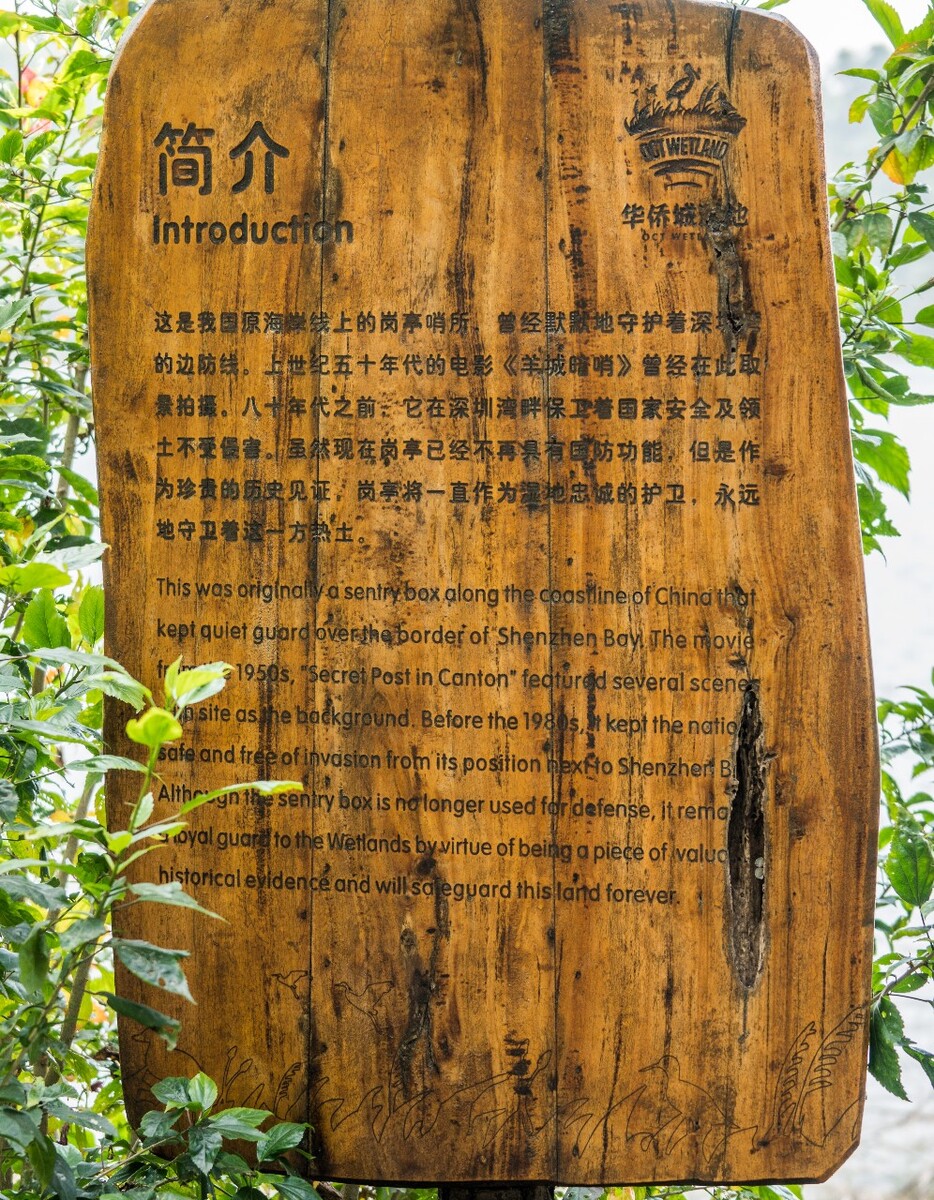 简介
Introduction
OCT WETLAND
华侨城 地
OCT
这是我国原海岸线上的岗亭哨所，曾经默默地守护着深圳
的边防线。上世纪五十年代的电影《羊城暗哨》曾经在此取
景拍摄。八十年代之前，它在深圳湾畔保卫着国家安全及领
土不受侵害。虽然现在岗亭已经不再具有国防功能，但是作
为珍贵的历史见证，岗亭将一直作为湿地忠诚的护卫，永远
地守卫着这一方热土。
This was originally a sentry box along the coastline of China that
kept quiet guard over the border of Shenzhen Bay. The movie
1950s, "Secret Post in Canton" featured several scenes
site as the background. Before the 1980s, it kept the
safe and free of invasion from its position next to Shenzhen
Although the sentry box is no longer used for defense, it
loyal guard to the Wetlands by virtue of being a piece of
historical evidence and will safeguard this land forever.